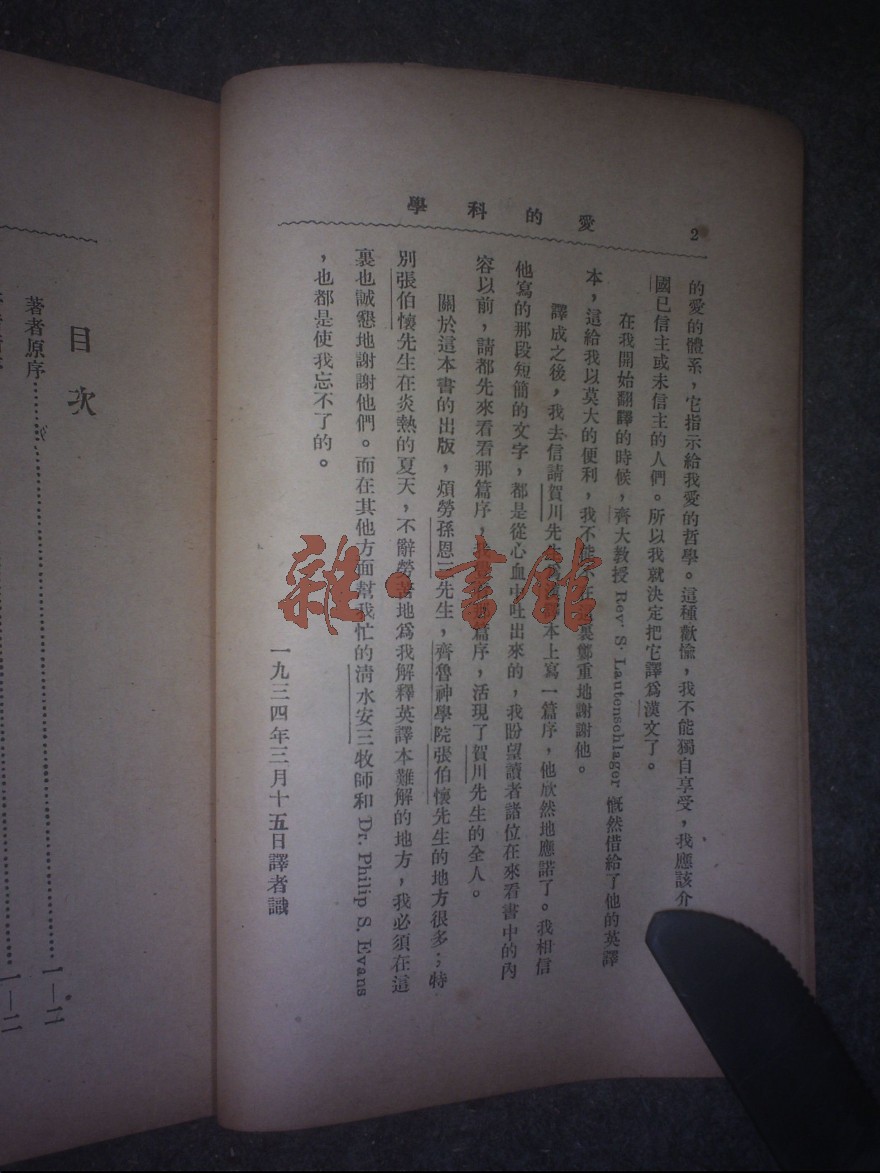 2
愛的科學
的愛的體系，它指示給我愛的哲學。這種歡愉，我不能獨自享受，我應該介
國已信主或未信主的人們。所以我就決定把它譯爲漢文了。
在我開始翻譯的時候，齊大教授 Rev. S. Lautenschlager 慨然借給了他的英譯
本，這給我以莫大的便利，我不能在裏鄭重地謝謝他。
譯成之後，我去信請賀川先生本上寫一篇序，他欣然地應諾了。我相信
他寫的那段短簡的文字，都是從心血中吐出來的，我盼望讀者諸位在來看書中的內
容以前，請都先來看看那篇序，篇序，活現了賀川先生的全人。
關於這本書的出版，煩勞孫恩三先生，齊魯神學院張伯懷先生的地方很多；特
別張伯懷先生在炎熱的夏天，不辭勞苦地爲我解釋英譯本難解的地方，我必須在這
裏也誠懇地謝謝他們。而在其他方面幫我忙的清水安三牧師和 Dr. Philip S. Evans
，也都是使我忘不了的。
一九三四年三月十五日譯者識
雜·書館
目次
著者原序 一—二
一—二